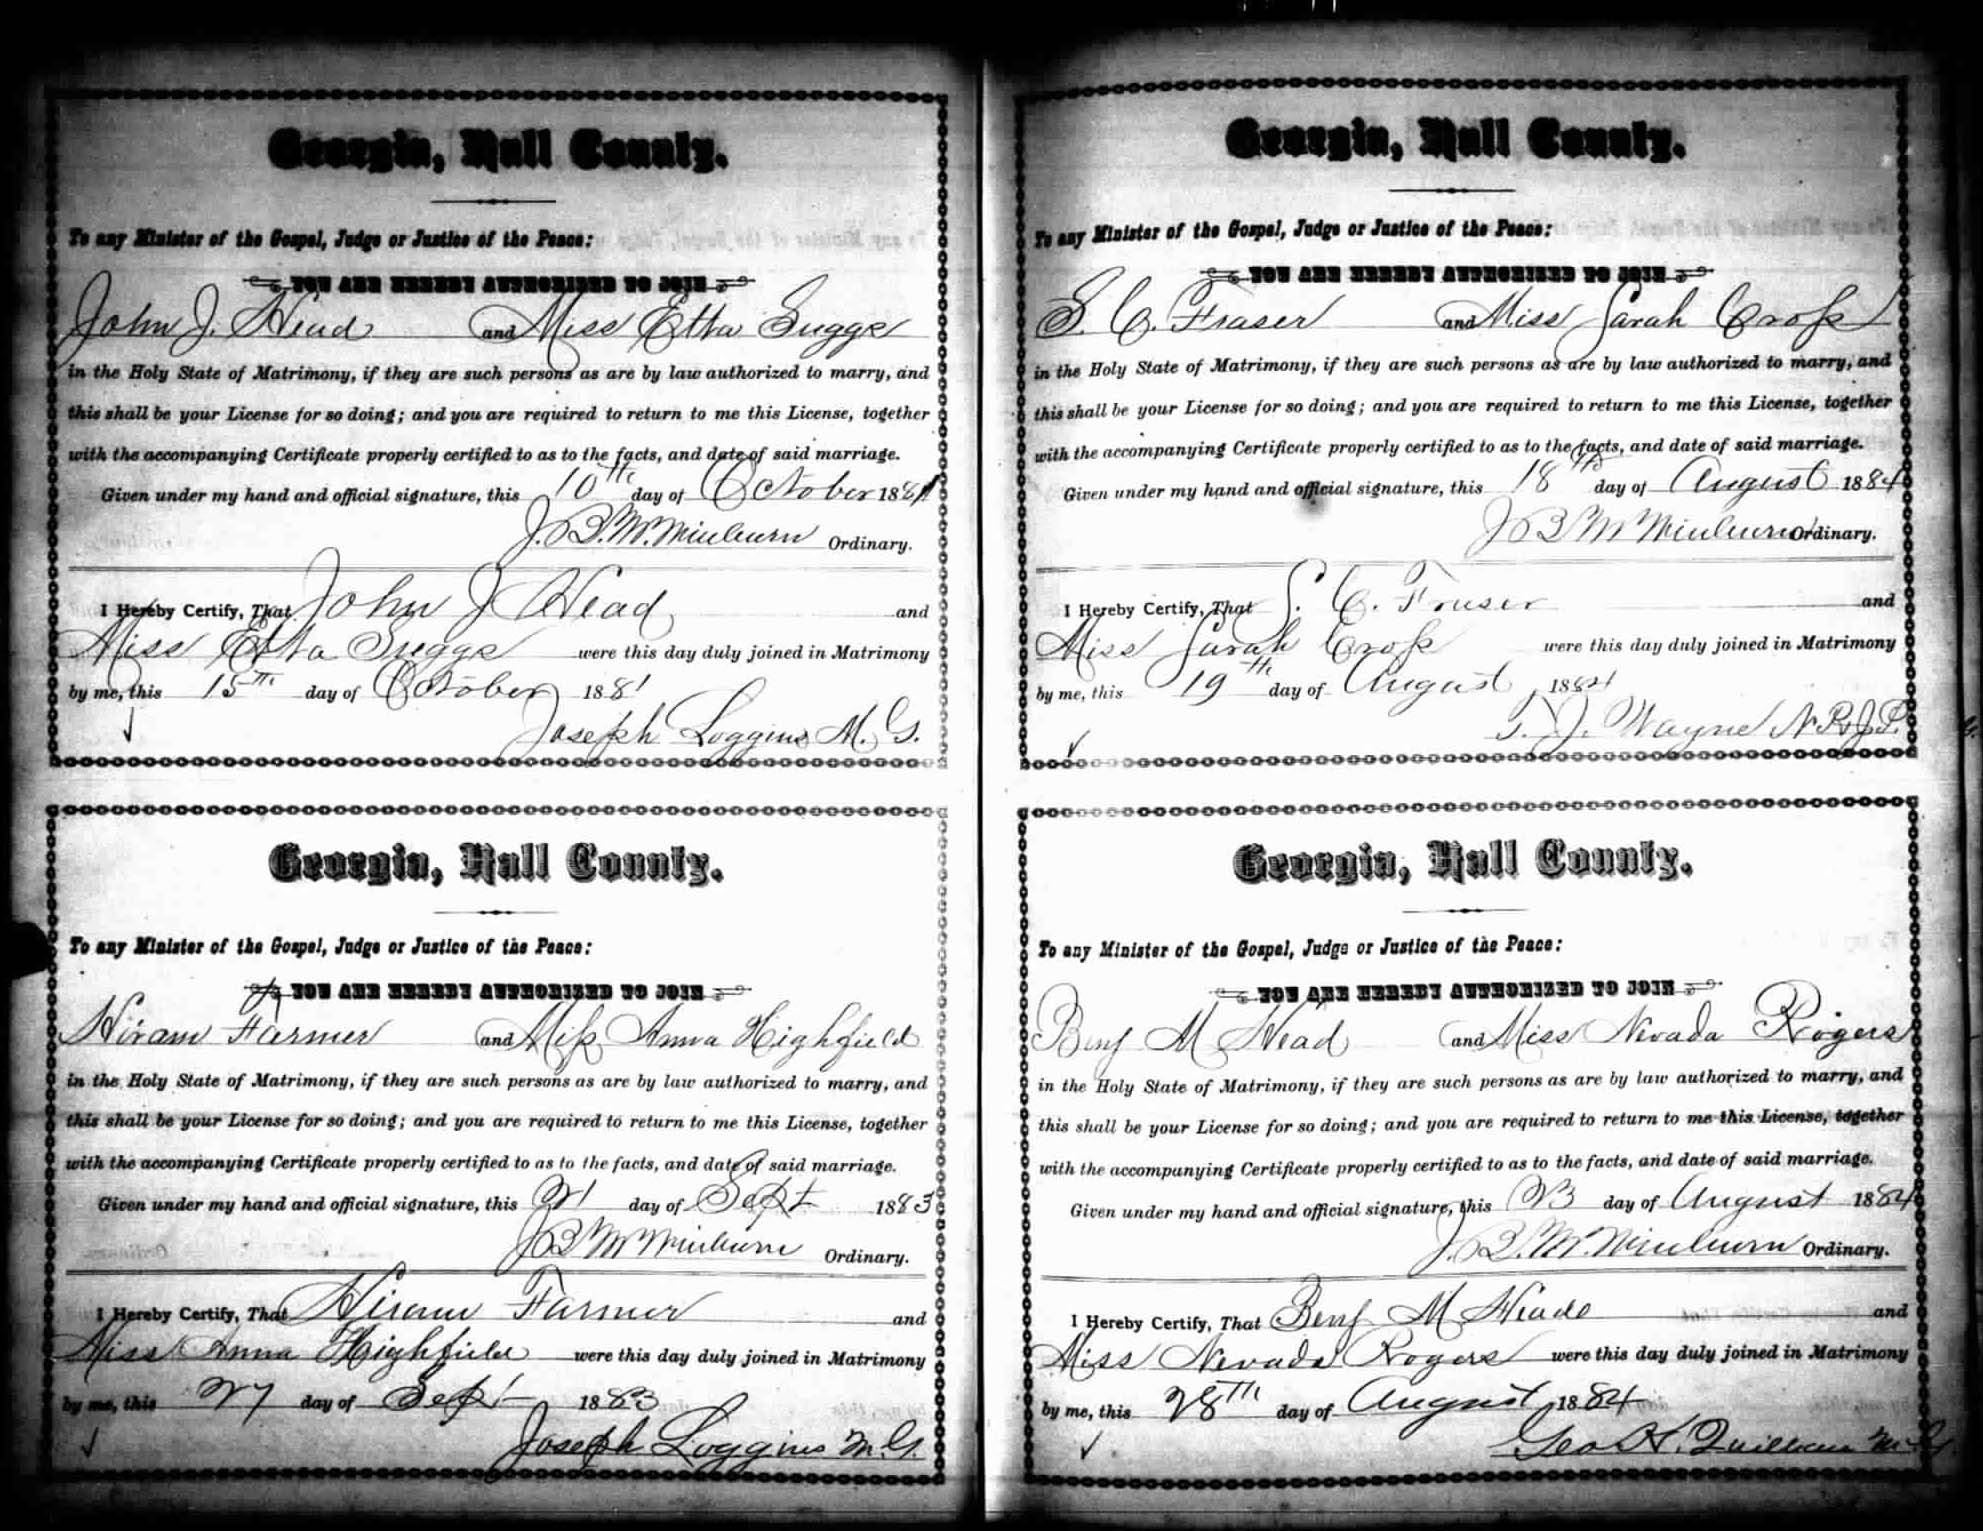 Georgia, Hall County.
To any Minister of the Gospel, Judge or Justice of the Peace:
YOU ARE HEREBY AUTHORIZED TO JOIN
John J. Head and Miss Etta Suggs
in the Holy State of Matrimony, if they are such persons as are by law authorized to marry, and
this shall be your License for so doing; and you are required to return to me this License, together
with the accompanying Certificate properly certified to as to the facts, and date of said marriage.
Given under my hand and official signature, this 10th day of October 1881
J. B. M. Winburn Ordinary.
I Hereby Certify, That John J Head and
Miss Etta Suggs were this day duly joined in Matrimony
by me, this 15th day of October 1881
Joseph Loggins M. G.
Georgia, Hall County.
To any Minister of the Gospel, Judge or Justice of the Peace:
YOU ARE HEREBY AUTHORIZED TO JOIN
Hiram Farmer and Miss Anna Highfield
in the Holy State of Matrimony, if they are such persons as are by law authorized to marry, and
this shall be your License for so doing; and you are required to return to me this License, together
with the accompanying Certificate properly certified to as to the facts, and date of said marriage.
Given under my hand and official signature, this 21 day of Sept 1883
J B M Winburn Ordinary.
I Hereby Certify, That Hiram Farmer and
Miss Anna Highfield were this day duly joined in Matrimony
by me, this 27 day of Sept 1883
Joseph Loggins M. G.
Georgia, Hall County.
To any Minister of the Gospel, Judge or Justice of the Peace:
YOU ARE HEREBY AUTHORIZED TO JOIN
S. C. Fraser and Miss Sarah Cross
in the Holy State of Matrimony, if they are such persons as are by law authorized to marry, and
this shall be your License for so doing; and you are required to return to me this License, together
with the accompanying Certificate properly certified to as to the facts, and date of said marriage.
Given under my hand and official signature, this 18th day of August 1884
J B M Winburn Ordinary.
I Hereby Certify, That S. C. Fraser and
Miss Sarah Cross were this day duly joined in Matrimony
by me, this 19th day of August 1884
T. J. Wayne N. P. & J. P.
Georgia, Hall County.
To any Minister of the Gospel, Judge or Justice of the Peace:
YOU ARE HEREBY AUTHORIZED TO JOIN
Benj M Head and Miss Nevada Rogers
in the Holy State of Matrimony, if they are such persons as are by law authorized to marry, and
this shall be your License for so doing; and you are required to return to me this License, together
with the accompanying Certificate properly certified to as to the facts, and date of said marriage.
Given under my hand and official signature, this 23 day of August 1884
J. B. M. Winburn Ordinary.
I Hereby Certify, That Benj M Heade and
Miss Nevada Rogers were this day duly joined in Matrimony
by me, this 28th day of August 1884
Geo K. Quillian M. G.